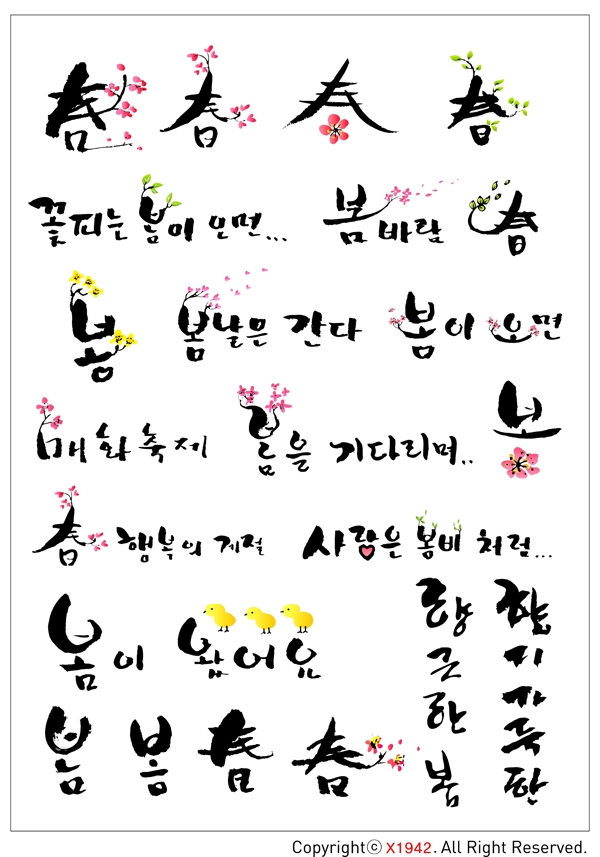 春 春 春 春
꽃피는 봄이 오면... 봄바람 春
봄 봄날은 간다 봄이 오면
매화축제 봄을 기다리며.. 봄
春 행복의 계절 사랑은 봄비처럼...
봄이 왔어요
봄 봄 春 春
향긋한 봄
향기 가득한
Copyrightⓒ X1942. All Right Reserved.